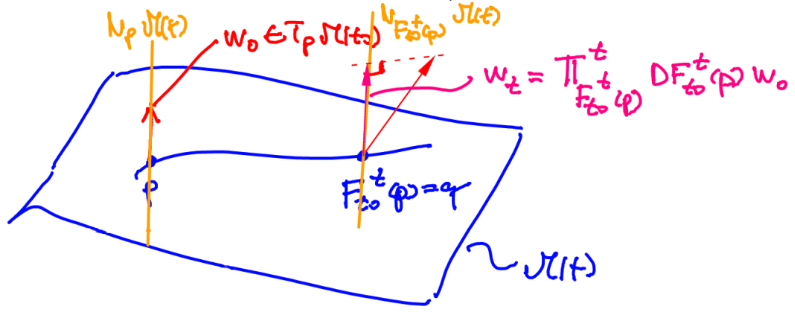 N_p M(t)
w_0 ∈ T_p M(t_0)
N_{F_{t_0}^t(p)} M(t)
w_t = Π_{F_{t_0}^t(p)}^t DF_{t_0}^t(p) w_0
p
F_{t_0}^t(p) = q
M(t)